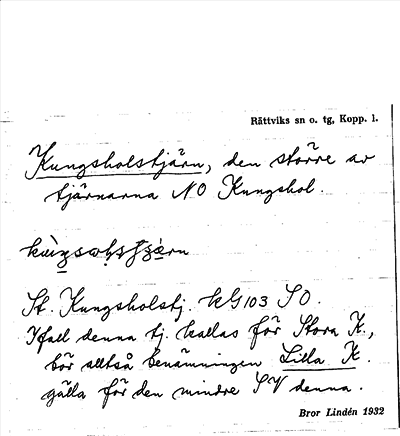 Rättviks sn o. tg, Kopp. l.
Kungsholstjärn, den större av
tjärnarna NO Kungshol.
St. Kungsholstj. kG103 SO.
Ifall denna tj. kallas för Stora K.,
bör alltså benämningen Lilla K.
gälla för den mindre SV denna.
Bror Lindén 1932